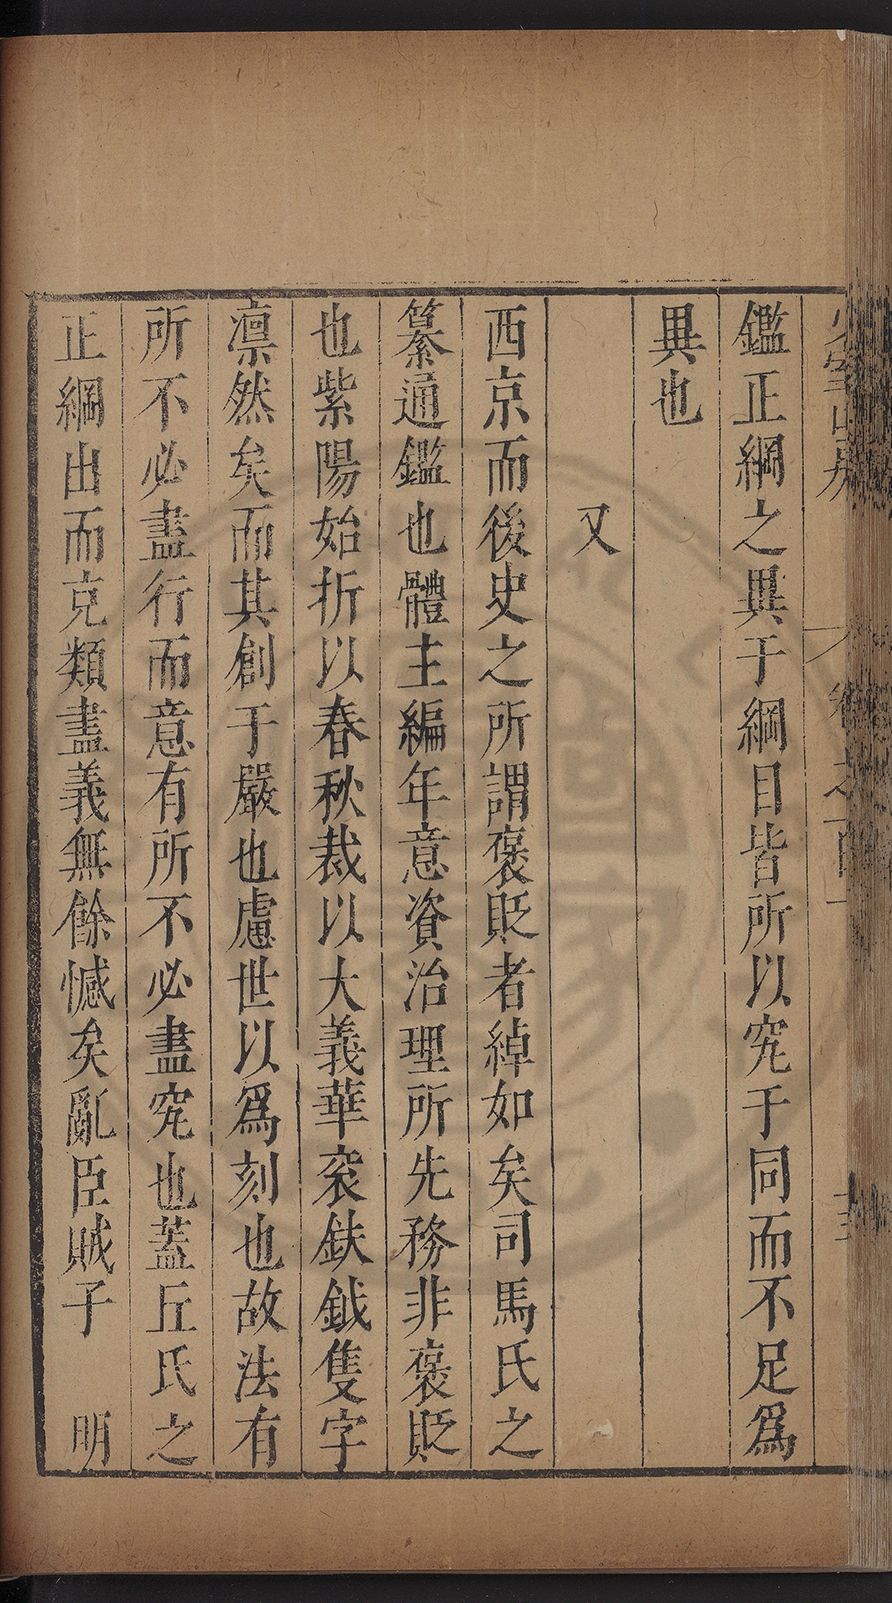 鑑正綱之異于綱目皆所以究于同而不足爲
異也
又
西京而後史之所謂褒貶者綽如矣司馬氏之
纂通鑑也體主編年意資治理所先務非褒貶
也紫陽始折以春秋裁以大義華衮鈇鉞隻字
凛然矣而其創于嚴也慮世以爲刻也故法有
所不必盡行而意有所不必盡究也蓋丘氏之
正綱出而克類盡義無餘憾矣亂臣賊子 明